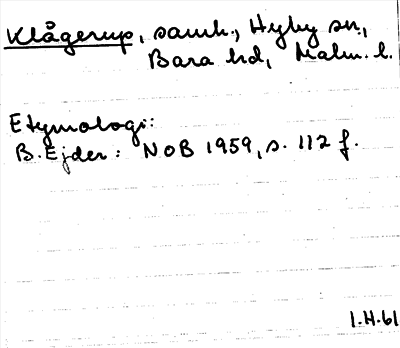 Klågerup, samh., Hyby sn.,
Bara hd, Malm. l.
Etymologi:
B. Ejder: NOB 1959, s. 112 f.
1.H.61